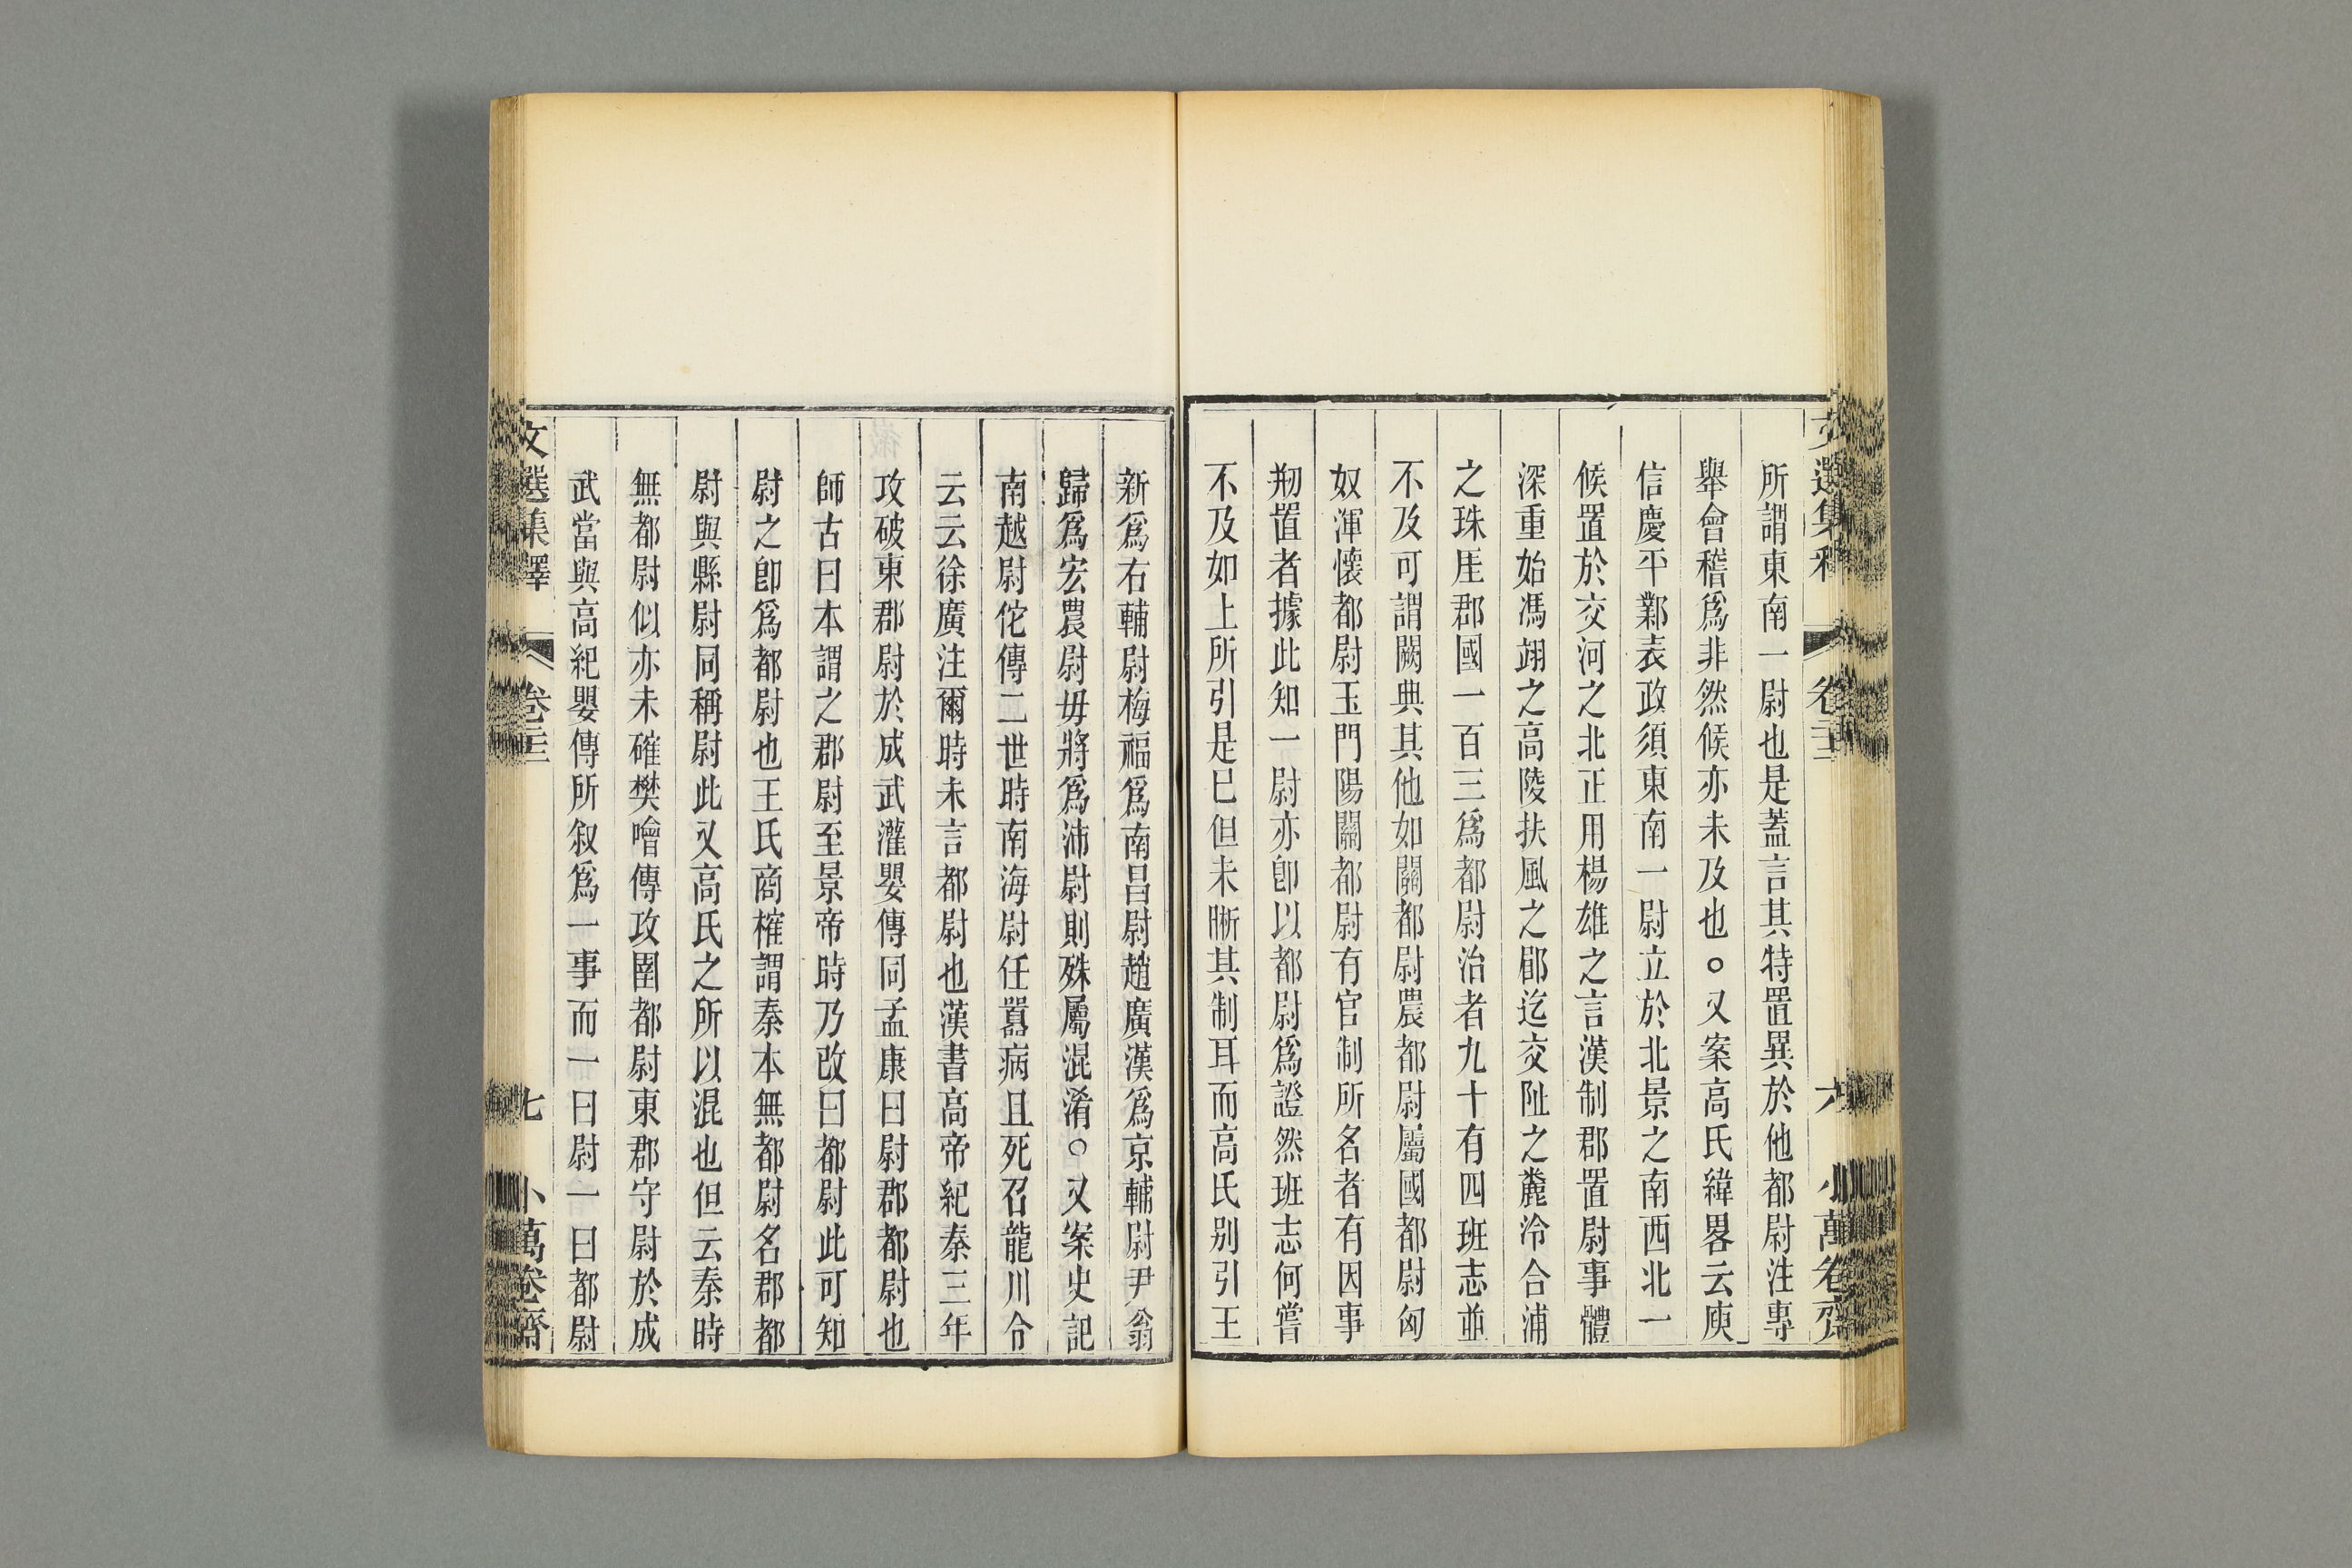 文選集釋 卷二十三 六 小萬卷齋
所謂東南一尉也是蓋言其特置異於他都尉注專
舉會稽爲非然候亦未及也○又案高氏緯畧云庾
信慶平鄴表政須東南一尉立於北景之南西北一
候置於交河之北正用楊雄之言漢制郡置尉事體
深重始馮翊之高陵扶風之郿迄交阯之麊泠合浦
之珠厓郡國一百三爲都尉治者九十有四班志並
不及可謂闕典其他如關都尉農都尉屬國都尉匈
奴渾懷都尉玉門陽關都尉有官制所名者有因事
剏置者據此知一尉亦卽以都尉爲證然班志何嘗
不及如上所引是已但未晣其制耳而高氏别引王
新爲右輔尉梅福爲南昌尉趙廣漢爲京輔尉尹翁
歸爲宏農尉毋將爲沛尉則殊屬混淆○又案史記
南越尉佗傳二世時南海尉任囂病且死召龍川令
云云徐廣注爾時未言都尉也漢書高帝紀秦三年
攻破東郡尉於成武灌嬰傳同孟康曰尉郡都尉也
師古曰本謂之郡尉至景帝時乃改曰都尉此可知
尉之卽爲都尉也王氏商榷謂秦本無都尉名郡都
尉與縣尉同稱尉此又高氏之所以混也但云秦時
無都尉似亦未確樊噲傳攻圉都尉東郡守尉於成
武當與高紀嬰傳所叙爲一事而一曰尉一曰都尉
文選集釋 卷二十三 七 小萬卷齋